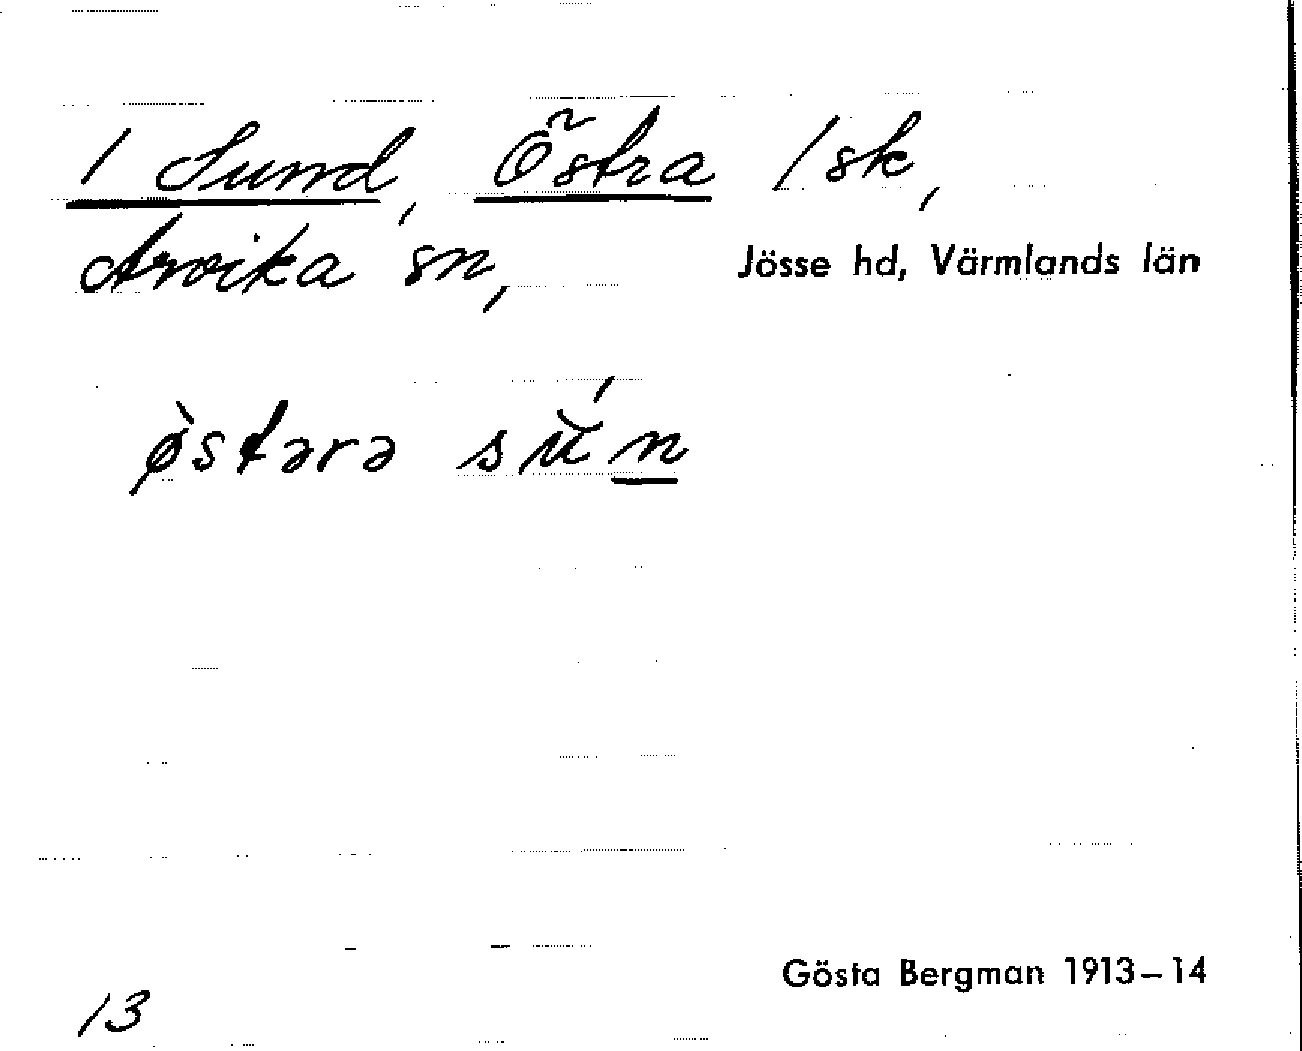 / Sund, Östra /sk,
Arvika sn, Jösse hd, Värmlands län
ø̀stərə sŭ́n̲
Gösta Bergman 1913–14
13